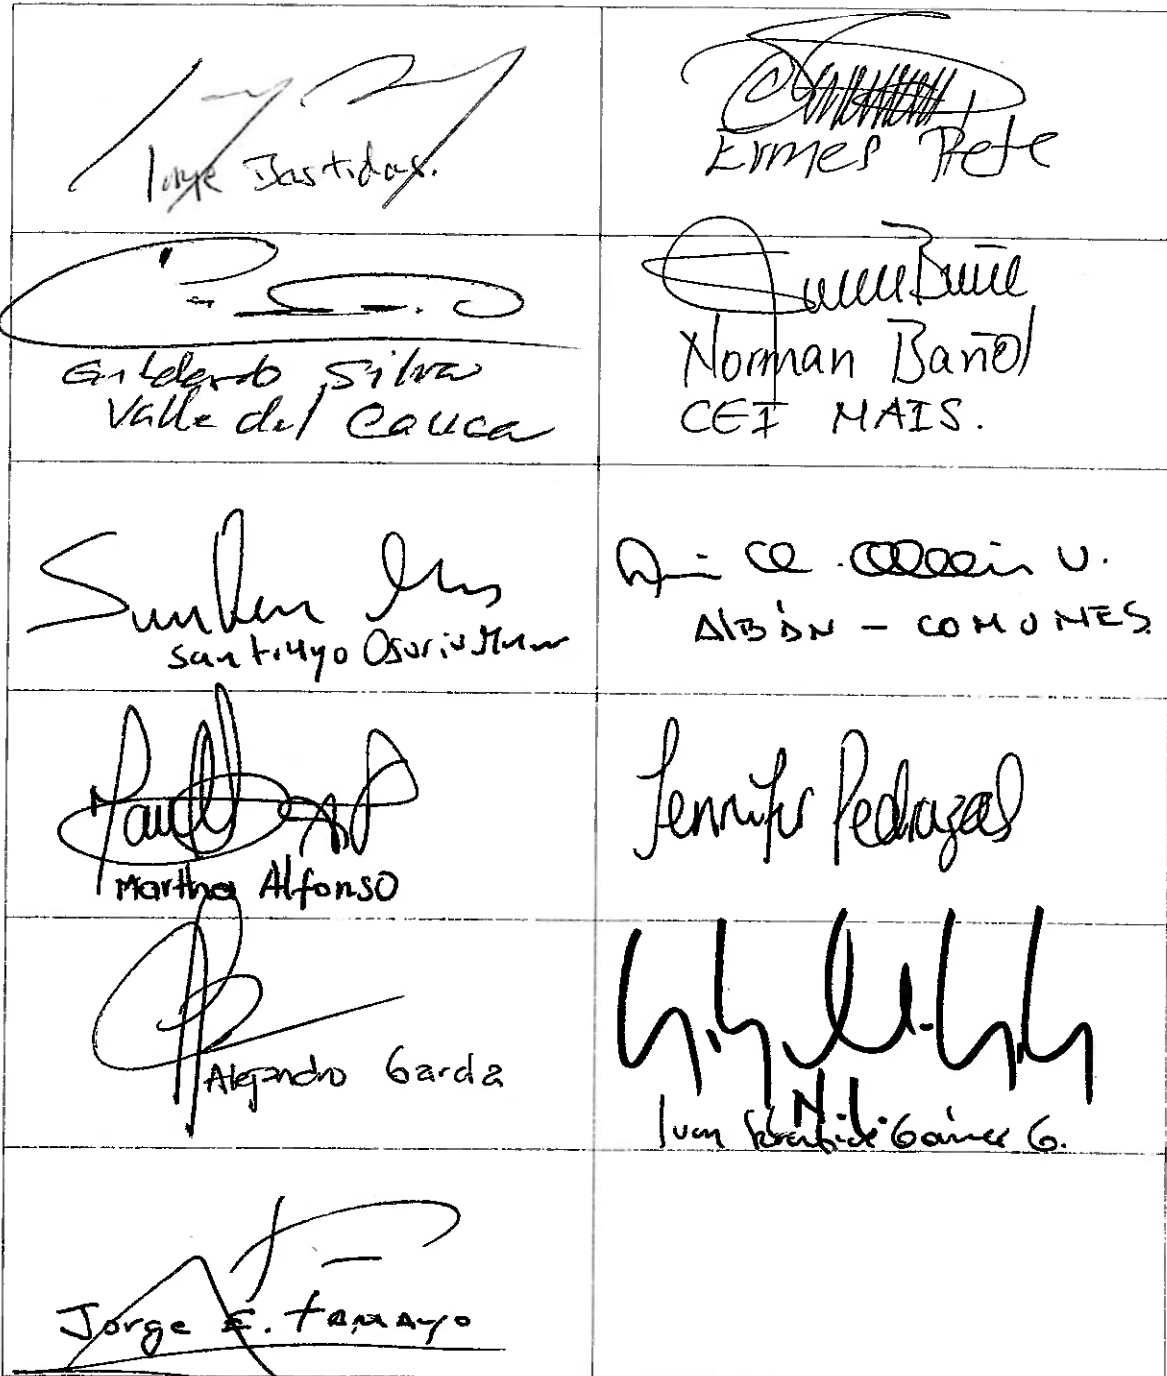 Jorge Bastidas.
Ermes Pete
Gildardo Silva
Valle del Cauca
Norman Bañol
CEI MAIS.
Santiago Osorio
Albán - COMUNES
Martha Alfonso
Jennifer Pedraza S
Alejandro García
Ivan Gómez G.
Jorge E. Tamayo